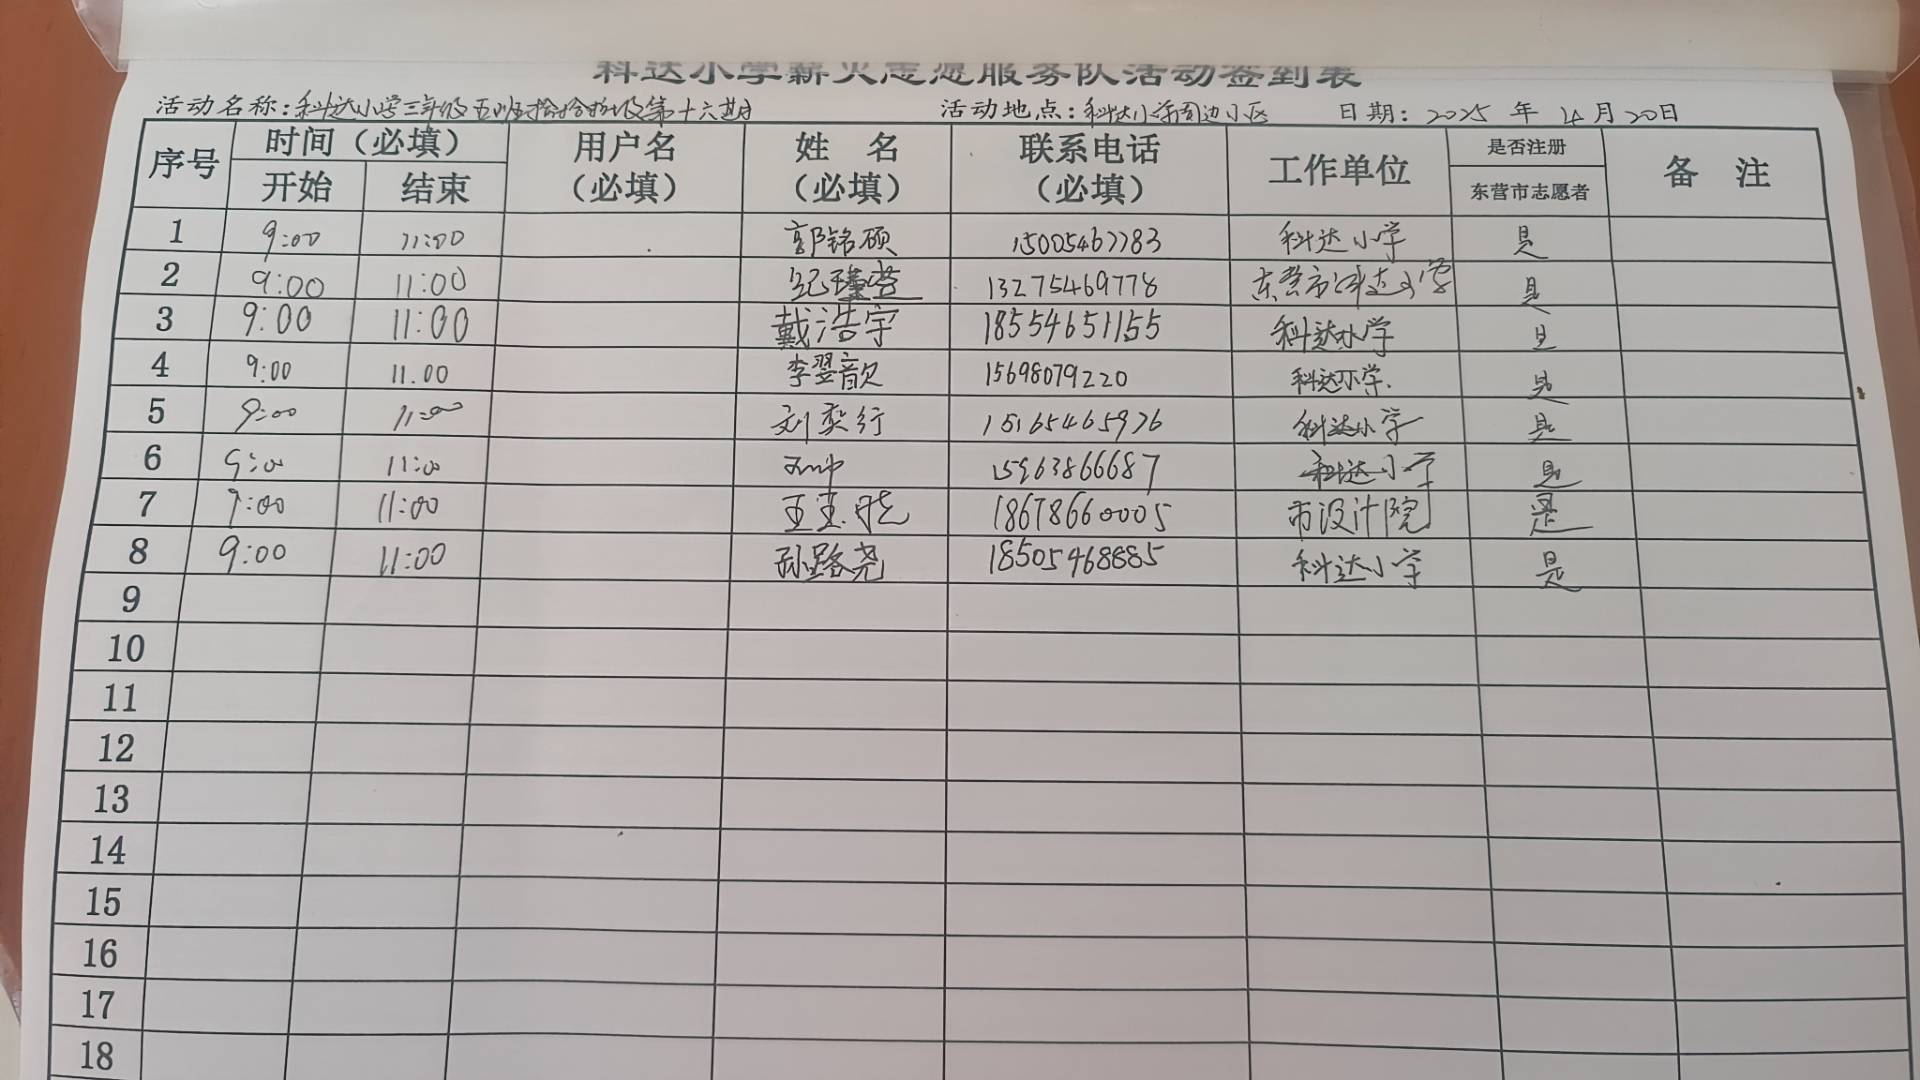 科达小学薪火志愿服务队活动签到表
活动名称：科达小学三年级五班捡拾垃圾第十六期 活动地点：科达小学周边小区 日期：2025 年 4月20日
序号 时间（必填） 用户名（必填） 姓 名（必填） 联系电话（必填） 工作单位 是否注册 备 注
开始 结束 东营市志愿者
1 9:00 11:00 郭铭硕 15005467783 科达小学 是
2 9:00 11:00 纪 13275469778 东营市科达小学 是
3 9:00 11:00 戴浩宇 18554651155 科达小学 是
4 9:00 11.00 李翌歆 15698079220 科达小学. 是
5 9:00 11:00 刘奕行 15165465976 科达小学 是
6 9:00 11:00 15963866687 科达小学 是
7 9:00 11:00 18678660005 市设计院 是
8 9:00 11:00 孙路尧 18505468885 科达小学 是
9
10
11
12
13
14
15
16
17
18